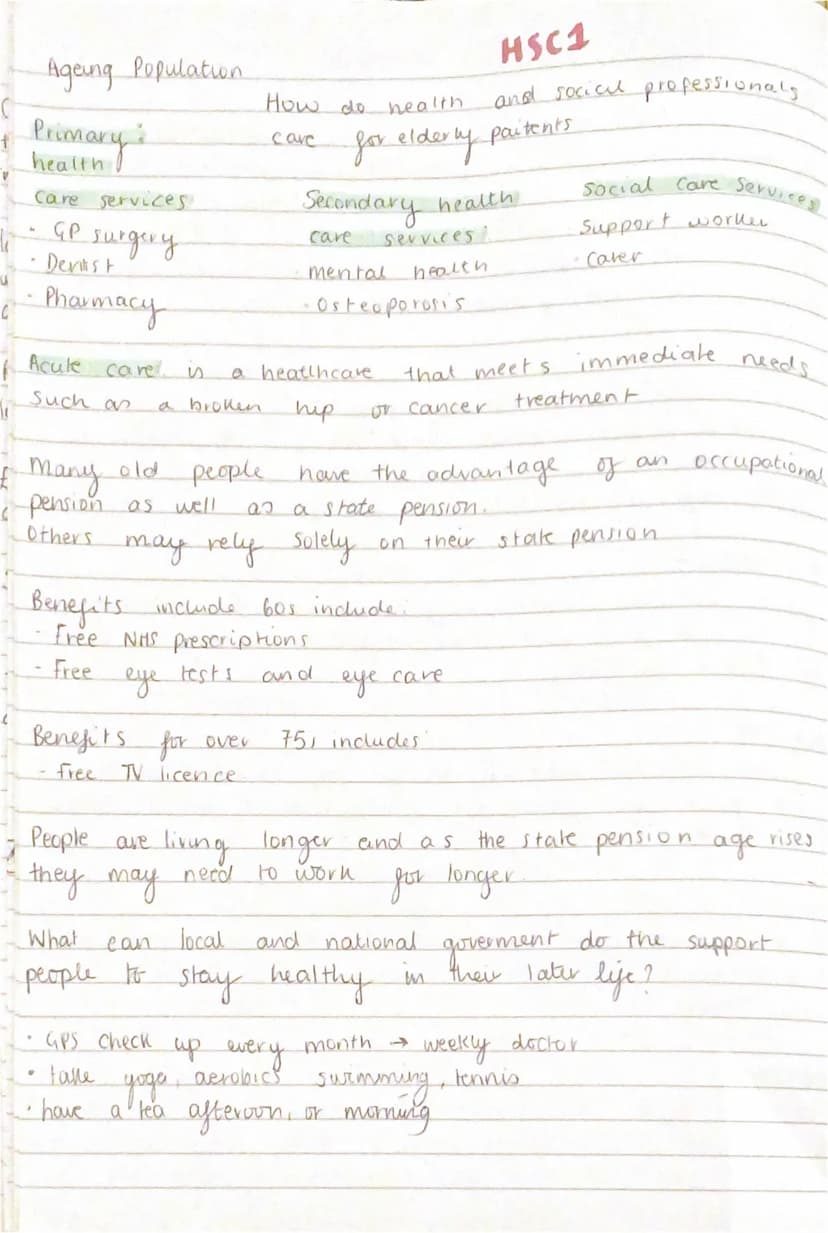 HSC1
Ageing Population
How do health and social professionals
care for elderly paitents
Primary :
health
care services
· GP surgery
· Dentist
· Pharmacy
Secondary health
care services:
mental health
· Osteoporosis
Social Care Services
Support worker
· Carer
Acute care is a heatlhcare that meets immediate needs
such as a broken hip or cancer treatment
Many old people have the advantage of an occupational
pension as well as a state pension.
Others may rely solely on their state pension
Benefits include 60s include:
- Free NHS prescriptions
- Free eye tests and eye care
Benefits for over 75s includes
- free TV licence
People are living longer and as the state pension age rises
they may need to work for longer
What can local and national goverment do the support
people to stay healthy in their later life?
· GPS check up every month → weekly doctor
· take yoga, aerobics swimming, tennis
· have a tea afteroon, or morning